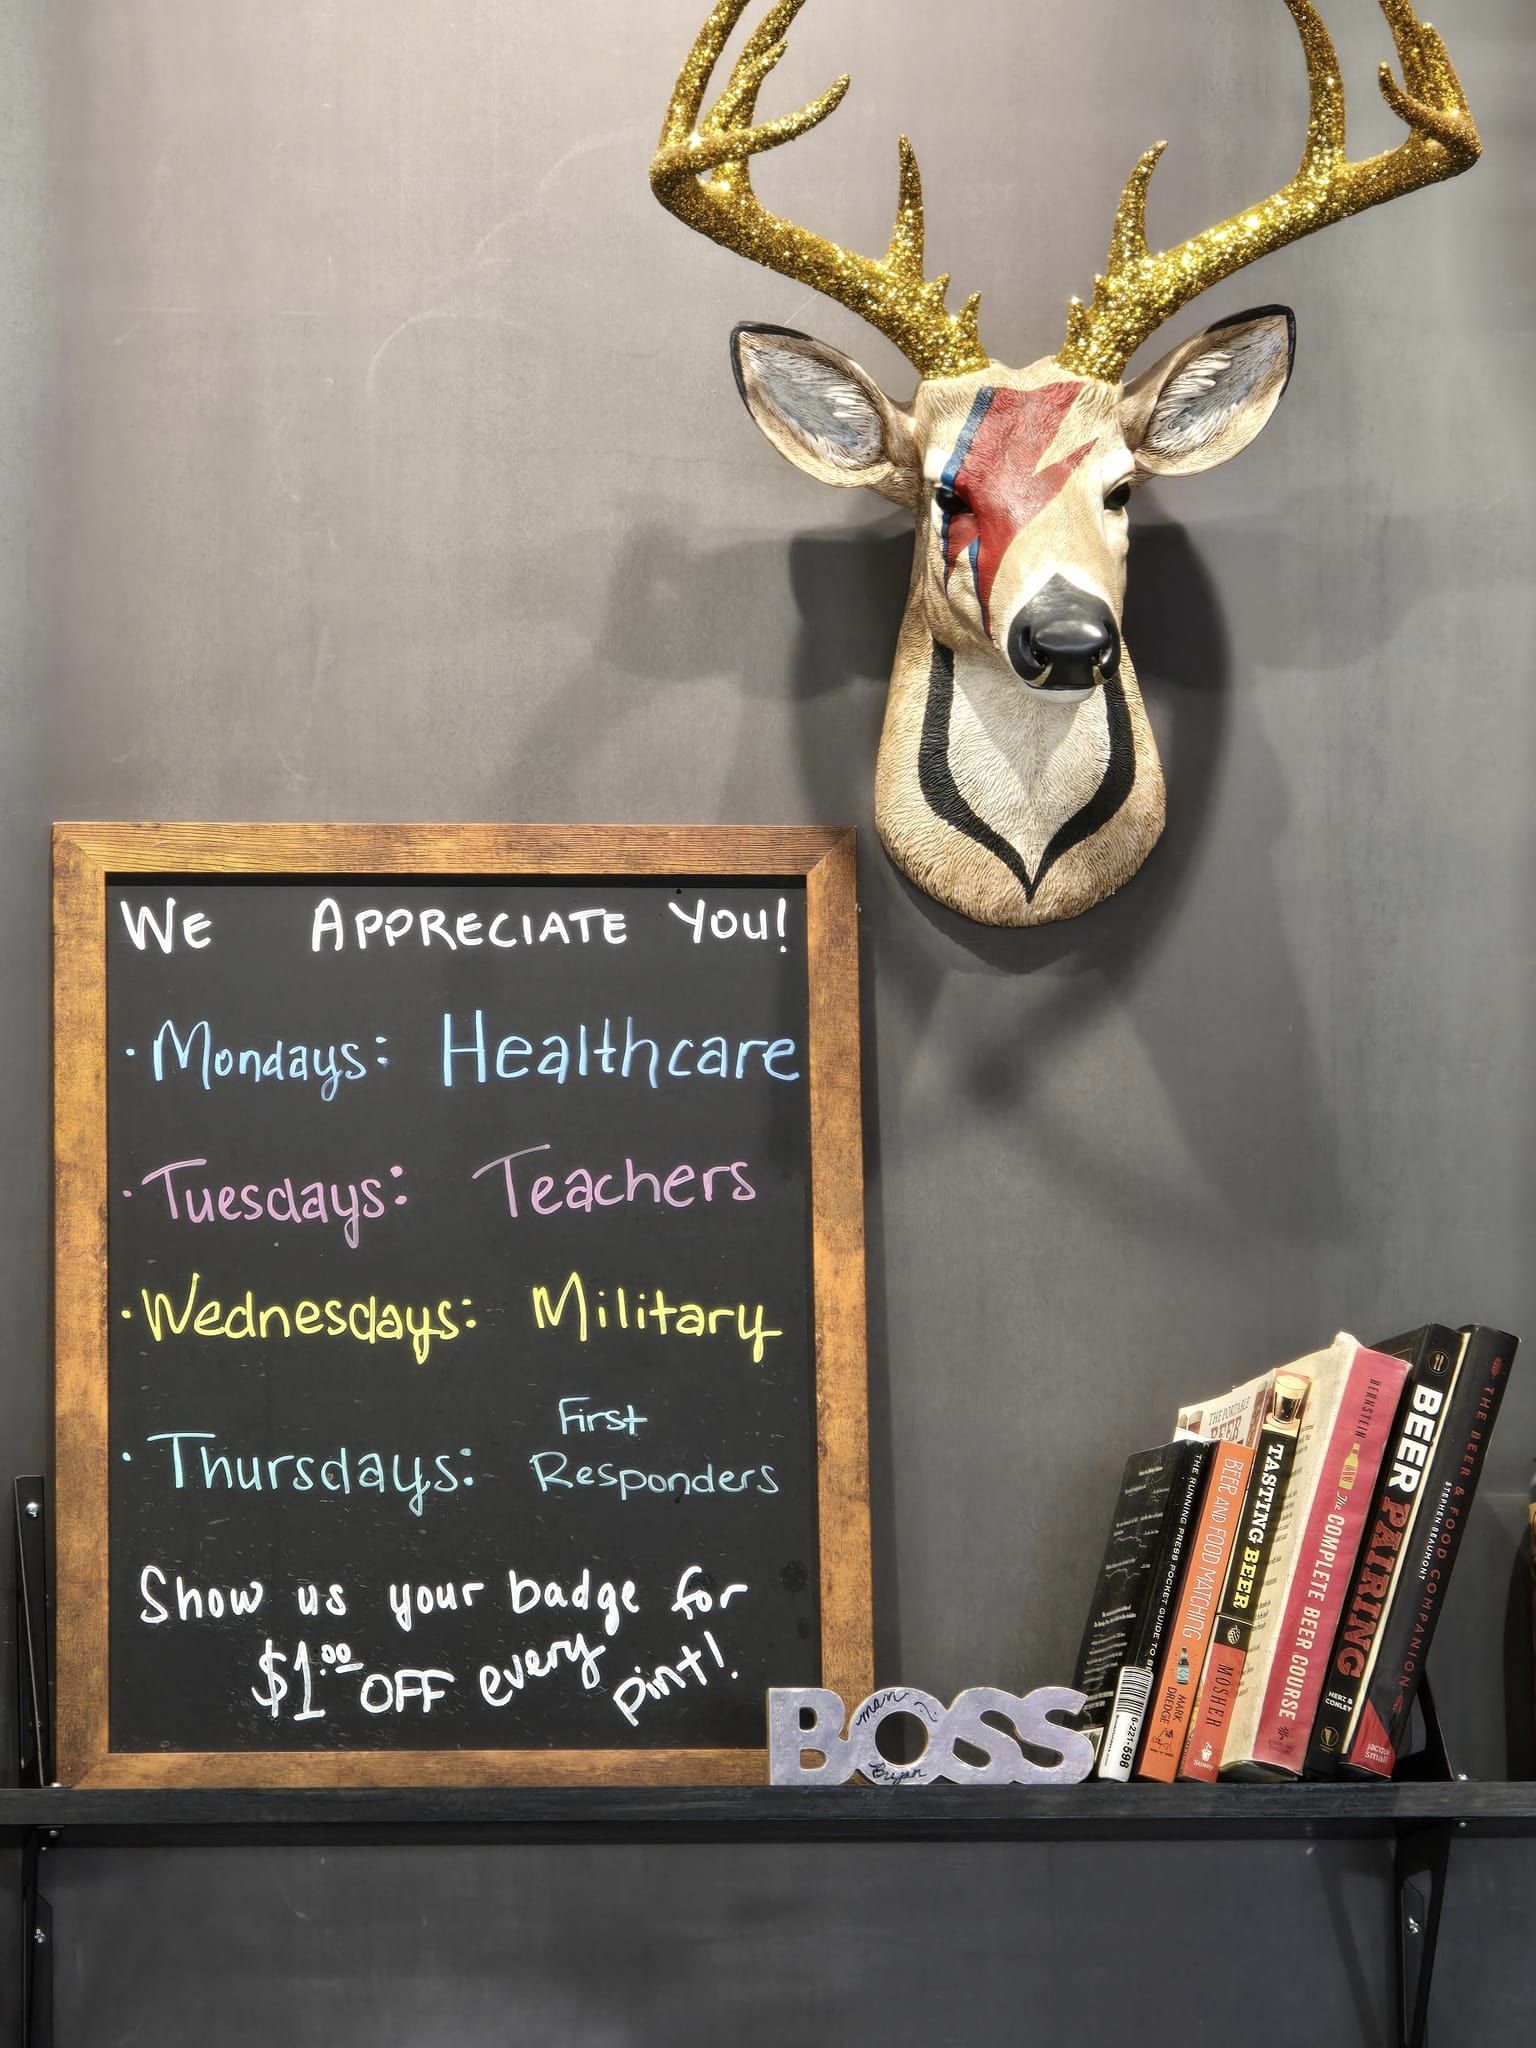 WE APPRECIATE YOU!
· Mondays: Healthcare
· Tuesdays: Teachers
· Wednesdays: Military
· Thursdays: First
Responders
Show us your badge for
$1.00 OFF every pint!
BOSS
man
Bryan
THE RUNNING PRESS POCKET GUIDE TO
6-221-598
THE PORTABLE
BEER
BEER AND FOOD MATCHING
MARK
DREDGE
TASTING BEER
MOSHER
Storey
BERNSTEIN
The COMPLETE BEER COURSE
BEER PAIRING
HERZ &
CONLEY
THE BEER & FOOD COMPANION
STEPHEN BEAUMONT
jacqui
small